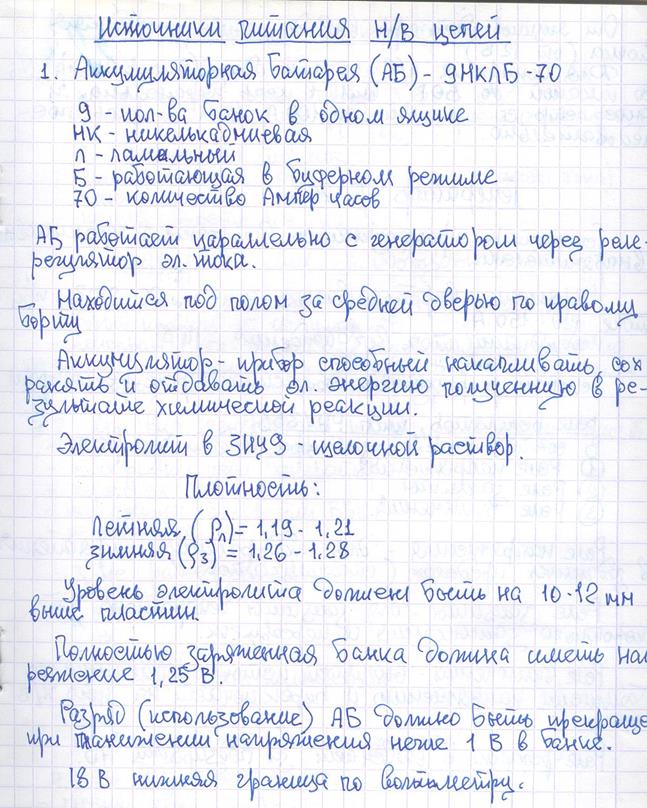 Источники питания н/в цепей
1. Аккумуляторная батарея (АБ) - 9НКЛБ-70
9 - кол-ва банок в одном ящике
НК - никелькадмиевая
Л - ламельный
Б - работающая в буферном режиме
70 - количество Ампер часов
АБ работает параллельно с генератором через реле-
регулятор эл. тока.
Находится под полом за средней дверью по правому
борту
Аккумулятор - прибор способный накапливать, сох
ранять и отдавать эл. энергию полученную в ре-
зультате химической реакции.
Электролит в ЗНУЭ - щелочной раствор.
Плотность:
Летняя (ρл) = 1,19 - 1,21
Зимняя (ρз) = 1,26 - 1,28
Уровень электролита должен быть на 10-12 мм
выше пластин.
Полностью заряженная банка должна иметь нап
ряжение 1,25 В.
Разряд (использование) АБ должно быть прекраще
при понижении напряжения неже 1 В в банке.
18 В нижняя граница по вольтметру.